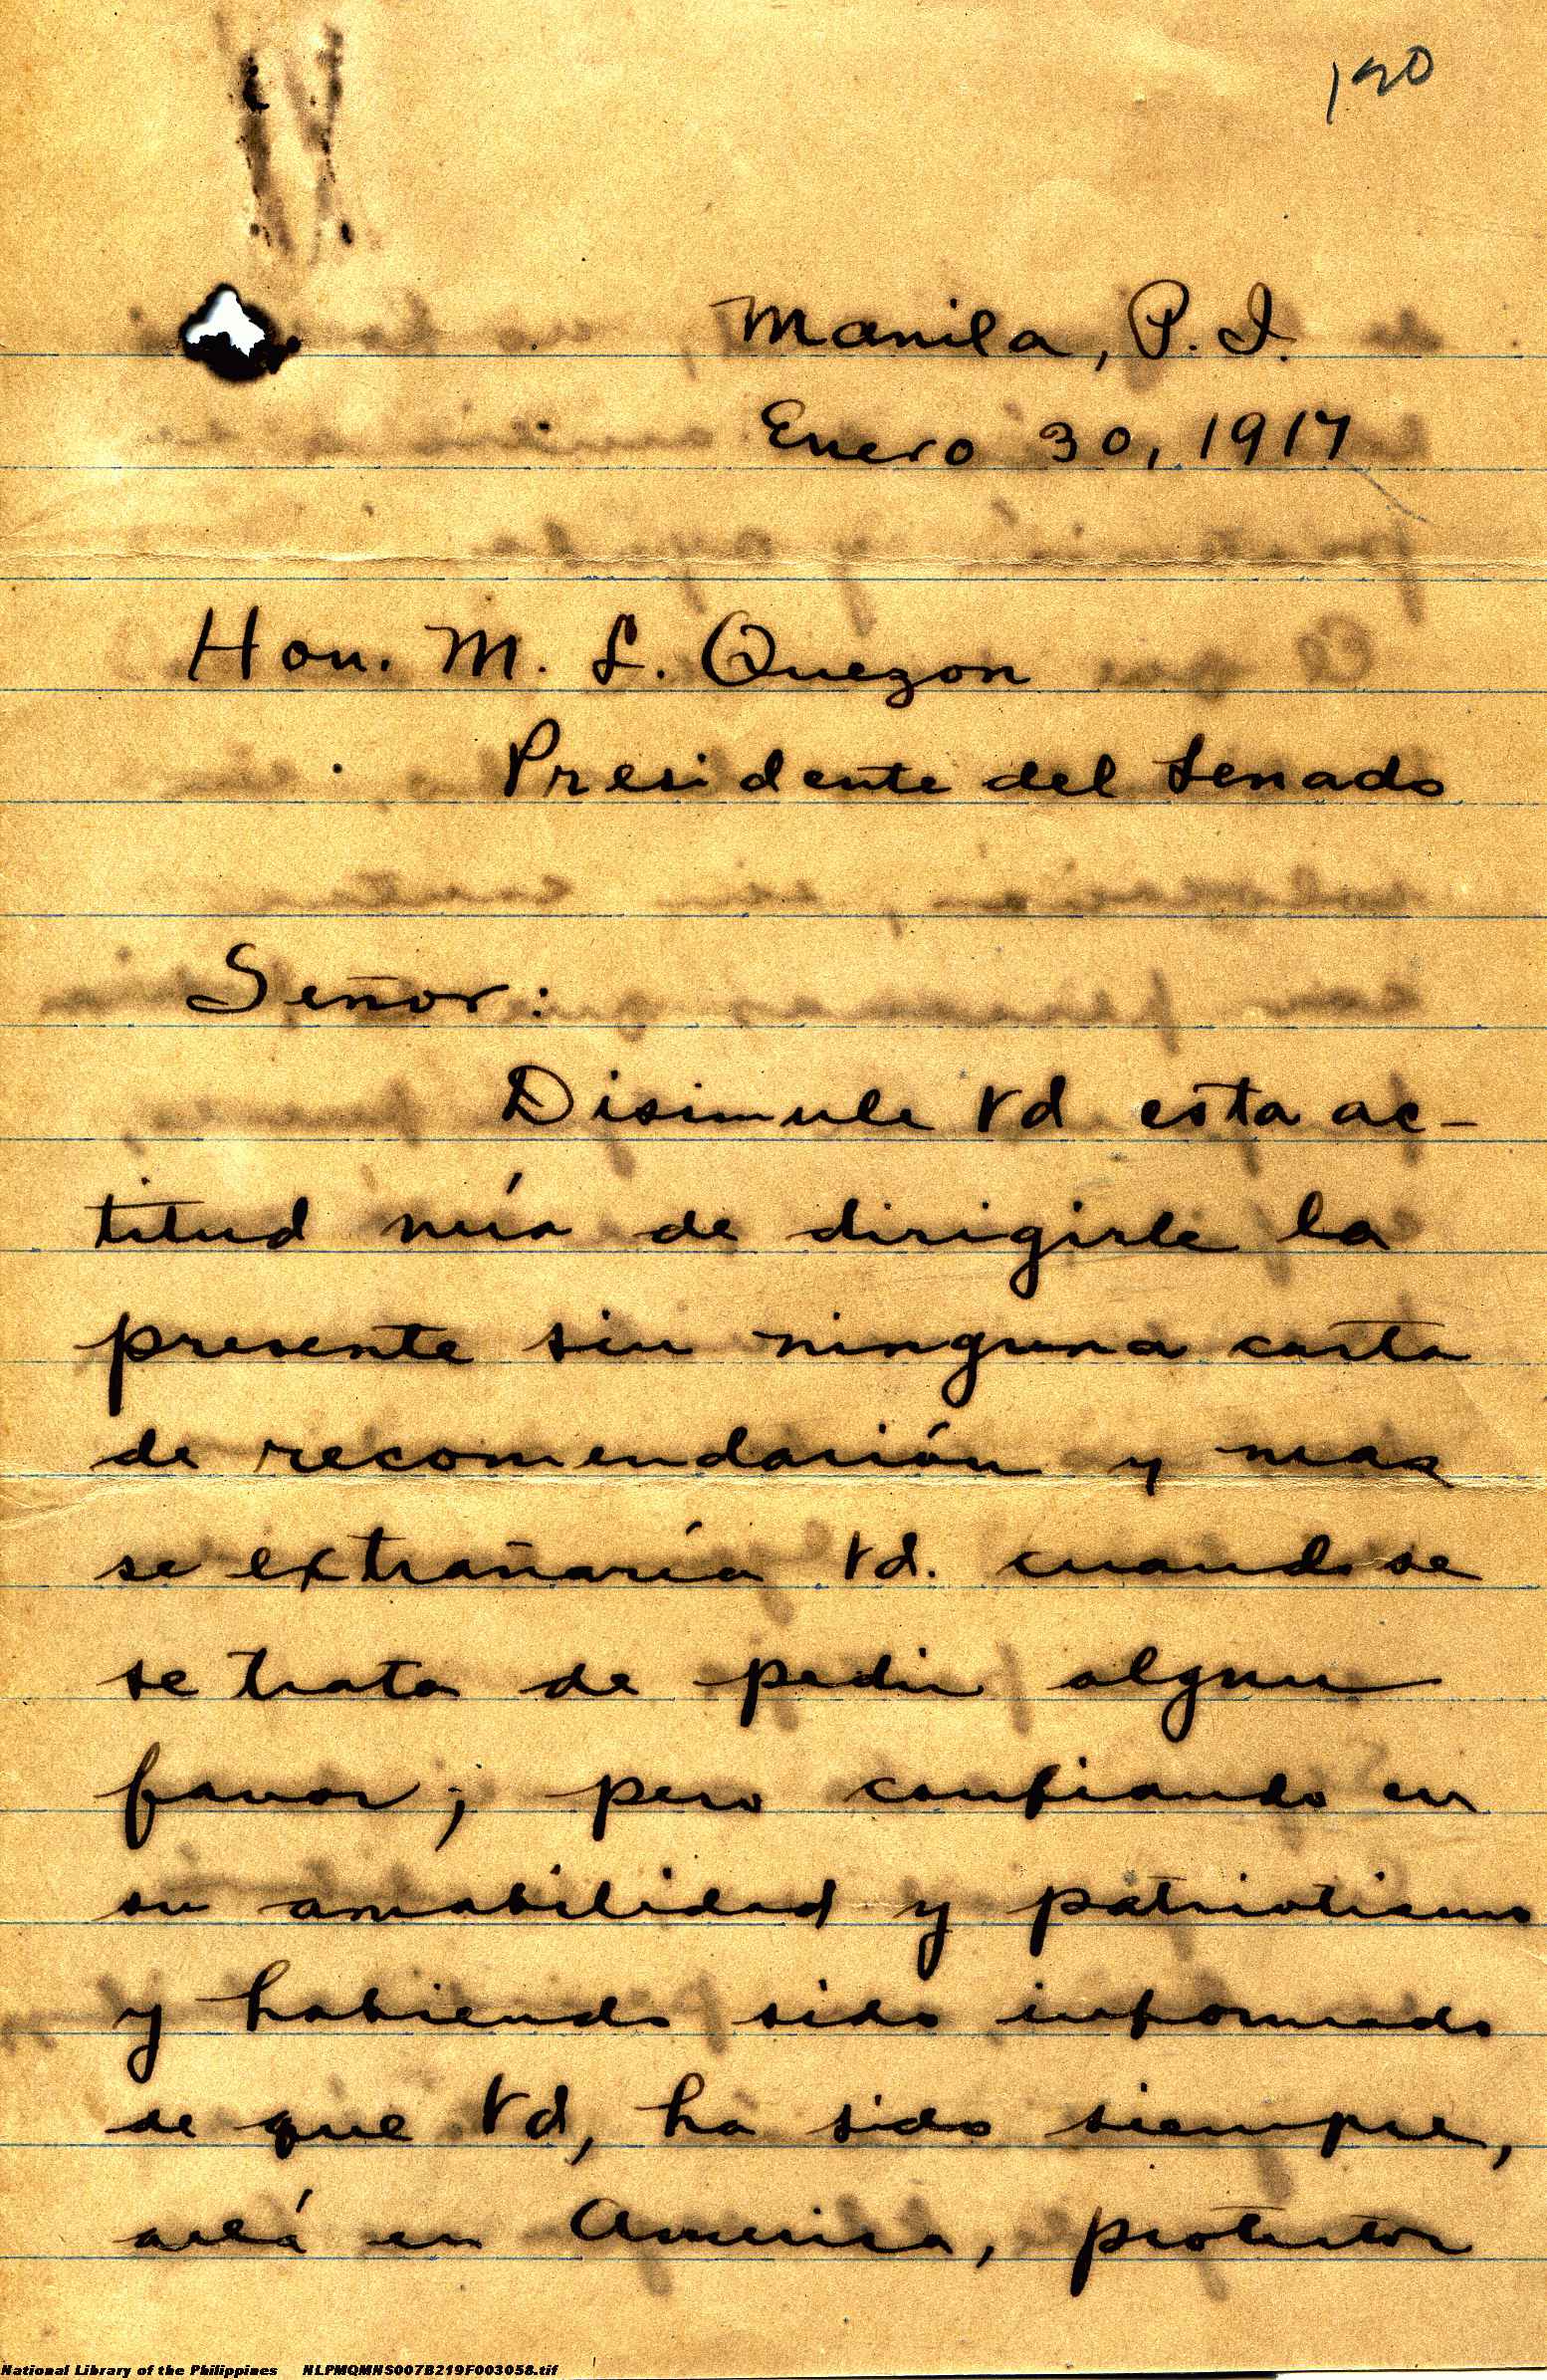 190
Manila, P. I.
Enero 30, 1917
Hon. M. L. Quezon
Presidente del Senado
Señor:
Disimule Vd esta ac-
titud mía de dirigirle la
presente sin ninguna carta
de recomendación y mas
se extrañaría Vd. cuando se
se trata de pedir algun
favor; pero confiando en
su amabilidad y patriotismo
y habiendo sido informado
de que Vd, ha sido siempre,
allá en America, protector
National Library of the Philippines NLPMQMNS007B219F003058.tif